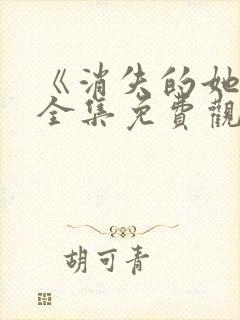 《消失的她
全集免費觀
胡可青